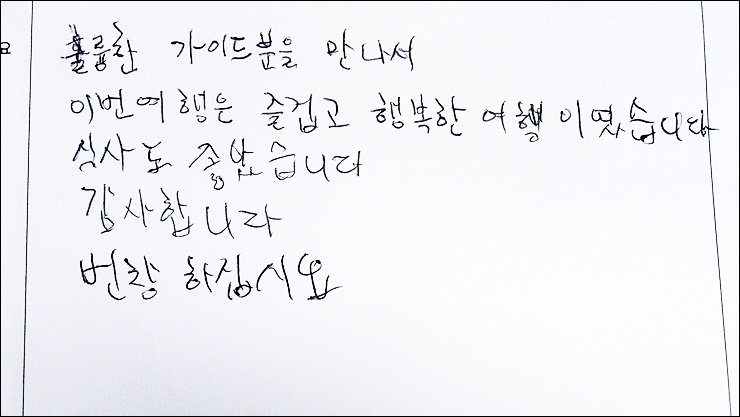 요
훌륭한 가이드분을 만나서
이번여행은 즐겁고 행복한 여행이였습니다
식사도 좋았습니다
감사합니다
번창 하십시요